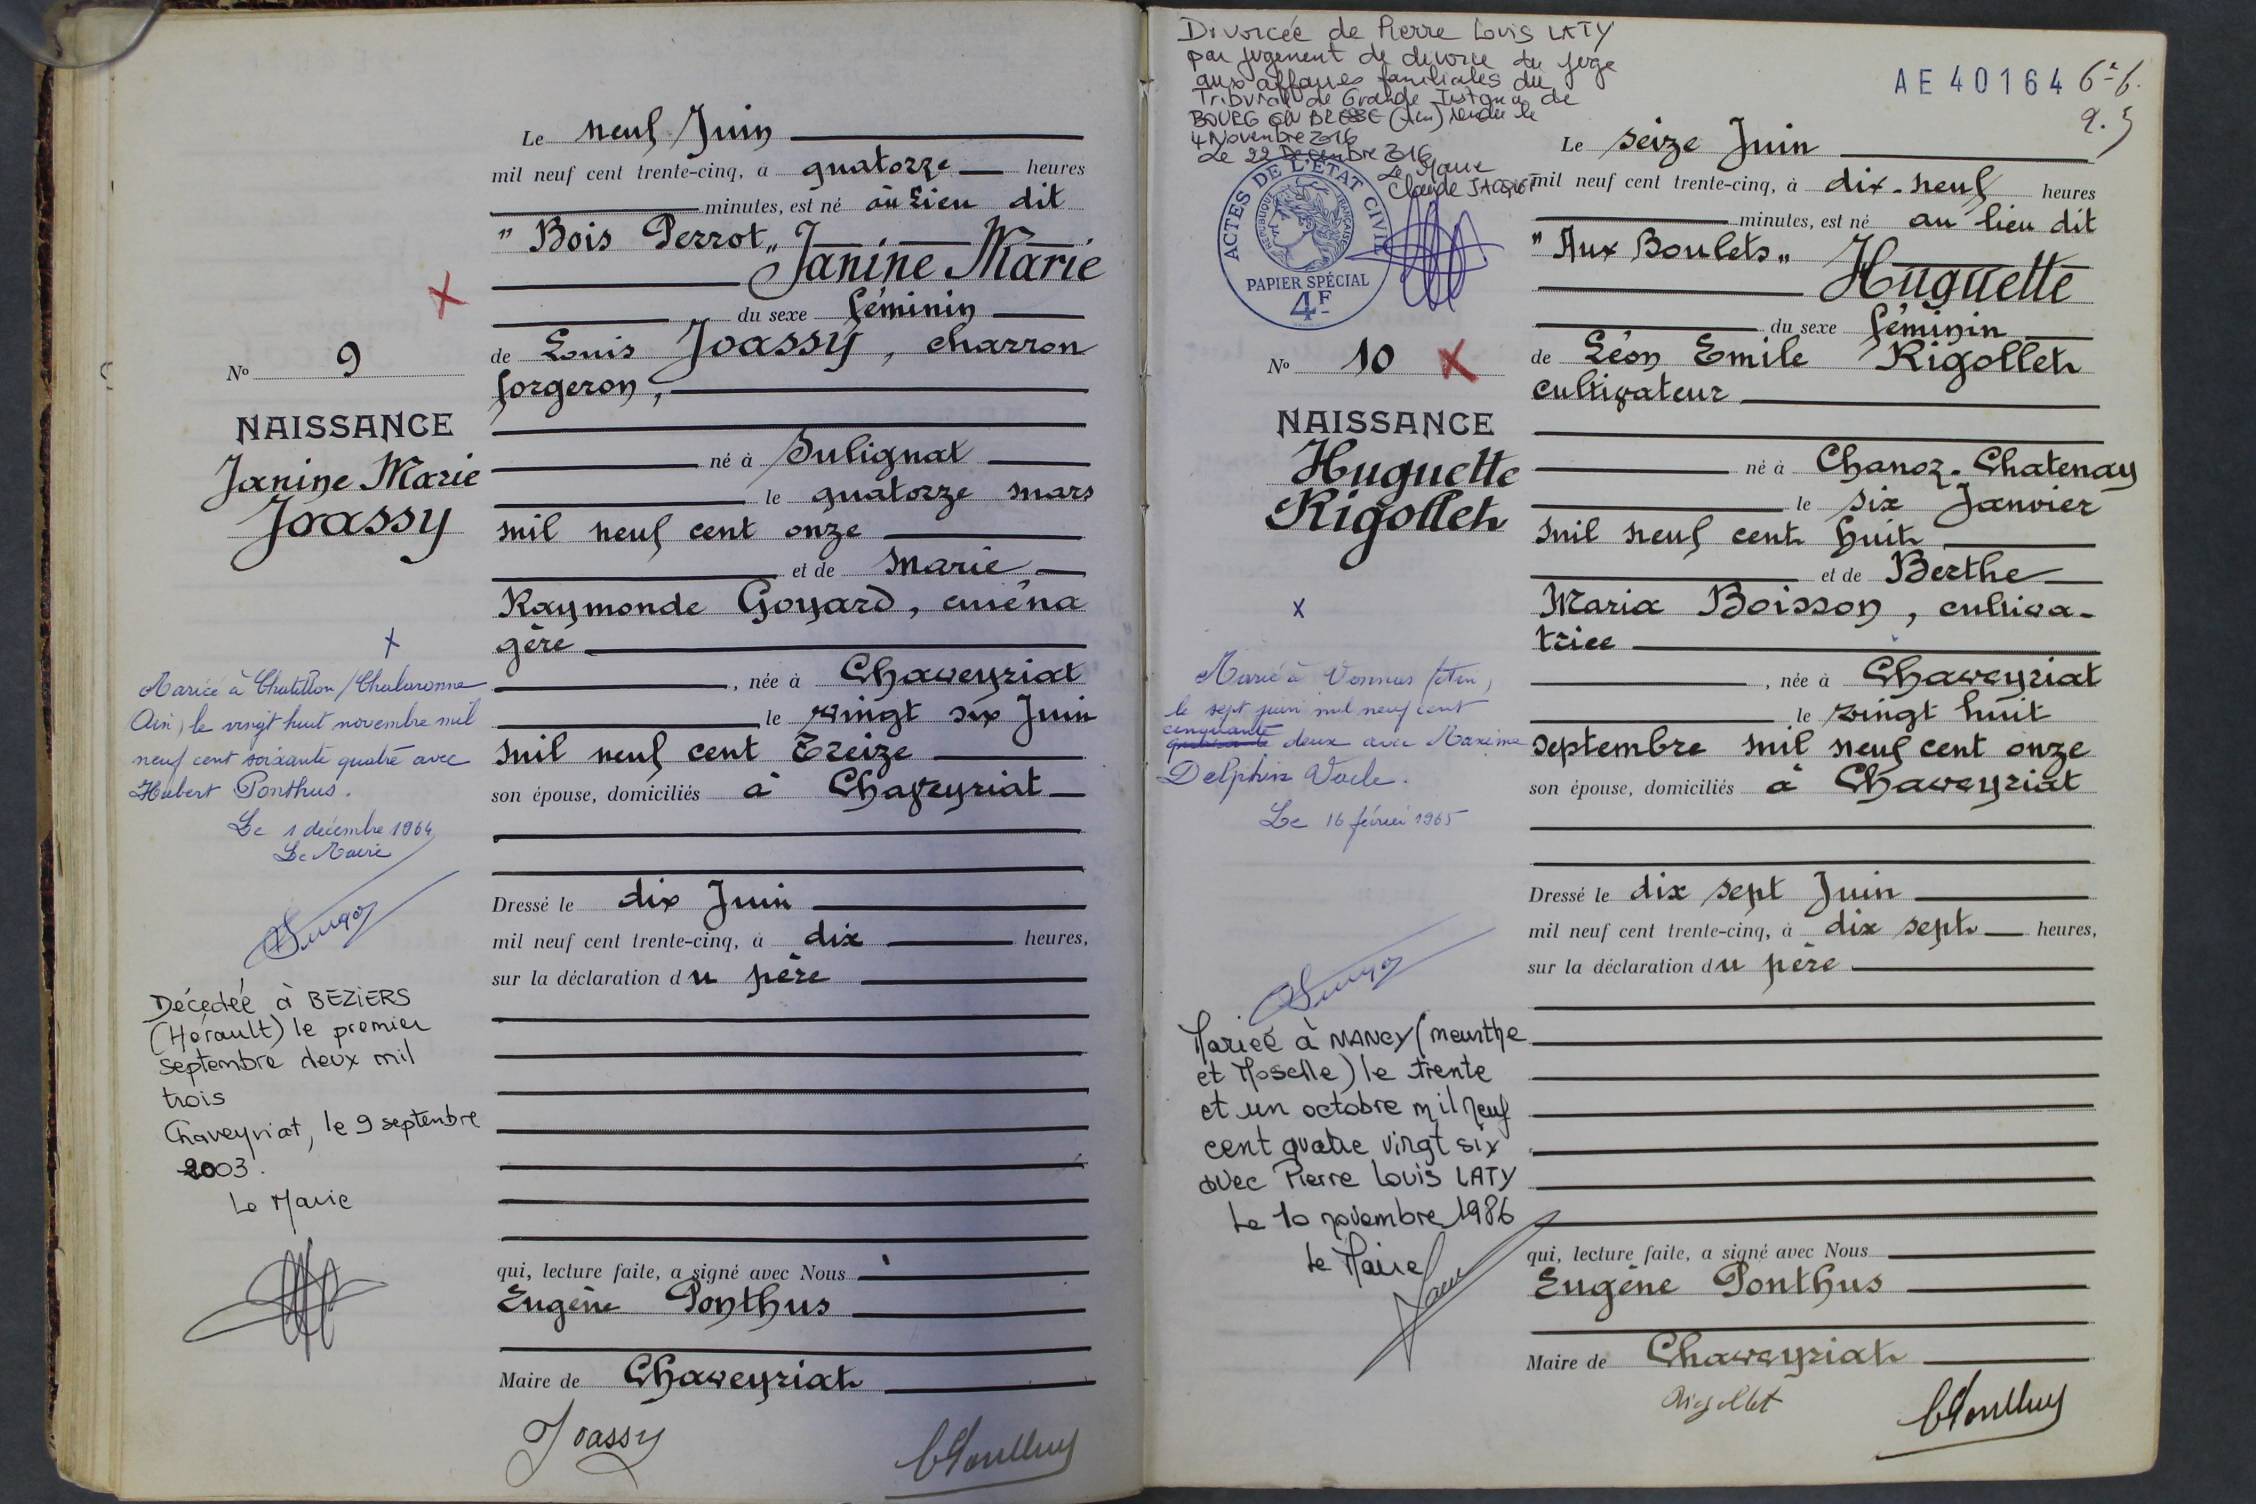 Le neuf Juin
mil neuf cent trente-cinq, à quatorze heures
minutes, est né au Lieu dit
" Bois Perrot „
Janine Marie
du sexe féminin
de Louis Joassy, charron
forgeron,
né à Sulignat
le quatorze mars
mil neuf cent onze
et de Marie
Raymonde Goyard, ména
gère
, née à Chaveyriat
le vingt six Juin
mil neuf cent treize
son épouse, domiciliés à Chaveyriat
Dressé le dix Juin
mil neuf cent trente-cinq, à dix heures,
sur la déclaration du père
qui, lecture faite, a signé avec Nous
Eugène Ponthus
Maire de Chaveyriat
Joassy
Nº 9
NAISSANCE
Janine Marie
Joassy
X
Mariée à Chatillon/Chalaronne
Ain, le vingt huit novembre mil
neuf cent soixante quatre avec
Hubert Ponthus.
Le 1 décembre 1964
Le Maire
Décédée à BEZIERS
(Hérault) le premier
septembre deux mil
trois
Chaveyriat, le 9 septembre
2003.
Le Maire
Divorcée de Pierre Louis LATY
par jugement de divorce du juge
aux affaires familiales du
Tribunal de Grande Instance de
BOURG EN BRESSE (Ain) rendu le
4 Novembre 2016
Le 22 Decembre 2016
Le Maire
Claude
ACTES DE L'ÉTAT CIVIL
RÉPUBLIQUE FRANÇAISE
PAPIER SPÉCIAL
4F
AE 40164
Le seize Juin
mil neuf cent trente-cinq, à dix-neuf heures
minutes, est né au lieu dit
" Aux Boulets „
Huguette
du sexe féminin
de Léon Emile Rigollet
cultivateur
né à Chanoz-Chatenay
le six Janvier
mil neuf cent huit
et de Berthe
Maria Boisson, cultiva-
trice
, née à Chaveyriat
le vingt huit
septembre mil neuf cent onze
son épouse, domiciliés à Chaveyriat
Dressé le dix sept Juin
mil neuf cent trente-cinq, à dix sept heures,
sur la déclaration du père
qui, lecture faite, a signé avec Nous
Eugène Ponthus
Maire de Chaveyriat
Rigollet
Nº 10
NAISSANCE
Huguette
Rigollet
X
Marié à Vonnas (Ain)
le sept juin mil neuf cent
cinquante
quarante deux avec Maxime
Delphin
Le 16 février 1965
Mariée à NANCY (Meurthe
et Moselle) le trente
et un octobre mil neuf
cent quatre vingt six
avec Pierre Louis LATY
Le 10 novembre 1986
Le Maire